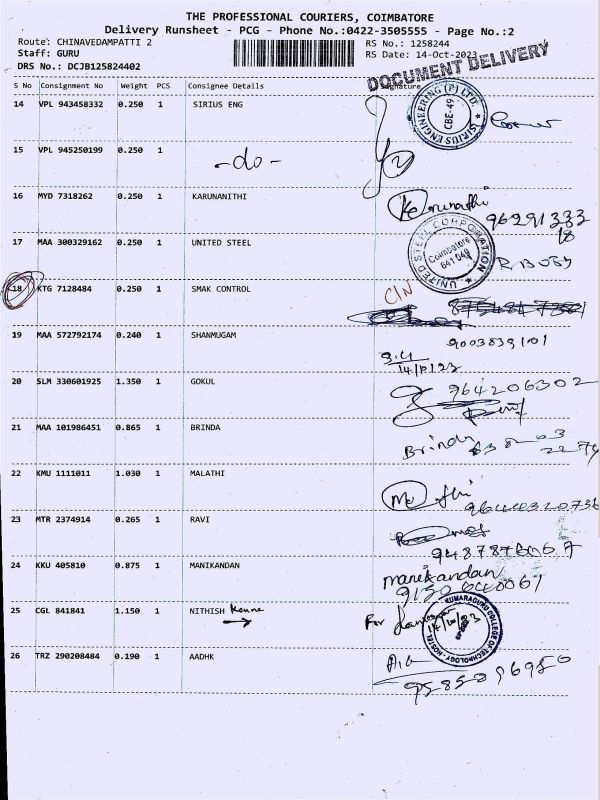 THE PROFESSIONAL COURIERS, COIMBATORE
Delivery Runsheet - PCG - Phone No.:0422-3505555 - Page No.:2
Route: CHINAVEDAMPATTI 2 RS No.: 1258244
Staff: GURU RS Date: 14-Oct-2023
DRS No.: DCJB125824402
DOCUMENT DELIVERY
S No Consignment No Weight PCS Consignee Details Signature
14 VPL 943458332 0.250 1 SIRIUS ENG
SIRIUS ENGINEERING (P) LTD. CBE-49
15 VPL 945250199 0.250 1 -do-
16 MYD 7318262 0.250 1 KARUNANITHI
96291333
18
17 MAA 300329162 0.250 1 UNITED STEEL
UNITED STEEL CORPORATION Coimbatore 641 049
18 KTG 7128484 0.250 1 SMAK CONTROL
C/N
19 MAA 572792174 0.240 1 SHANMUGAM
9003839101
20 SLM 330601925 1.350 1 GOKUL
964206302
21 MAA 101986451 0.865 1 BRINDA
Brinda
22 KMU 1111011 1.030 1 MALATHI
9644320736
23 MTR 2374914 0.265 1 RAVI
24 KKU 405810 0.875 1 MANIKANDAN
manikandan
25 CGL 841841 1.150 1 NITHISH
For
KUMARAGURU COLLEGE OF TECHNOLOGY - HOSTEL
26 TRZ 290208484 0.190 1 AADHK
9585096950